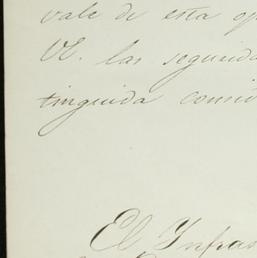 vale de esta op
VE. las segurida
tinguida consid
El Infras